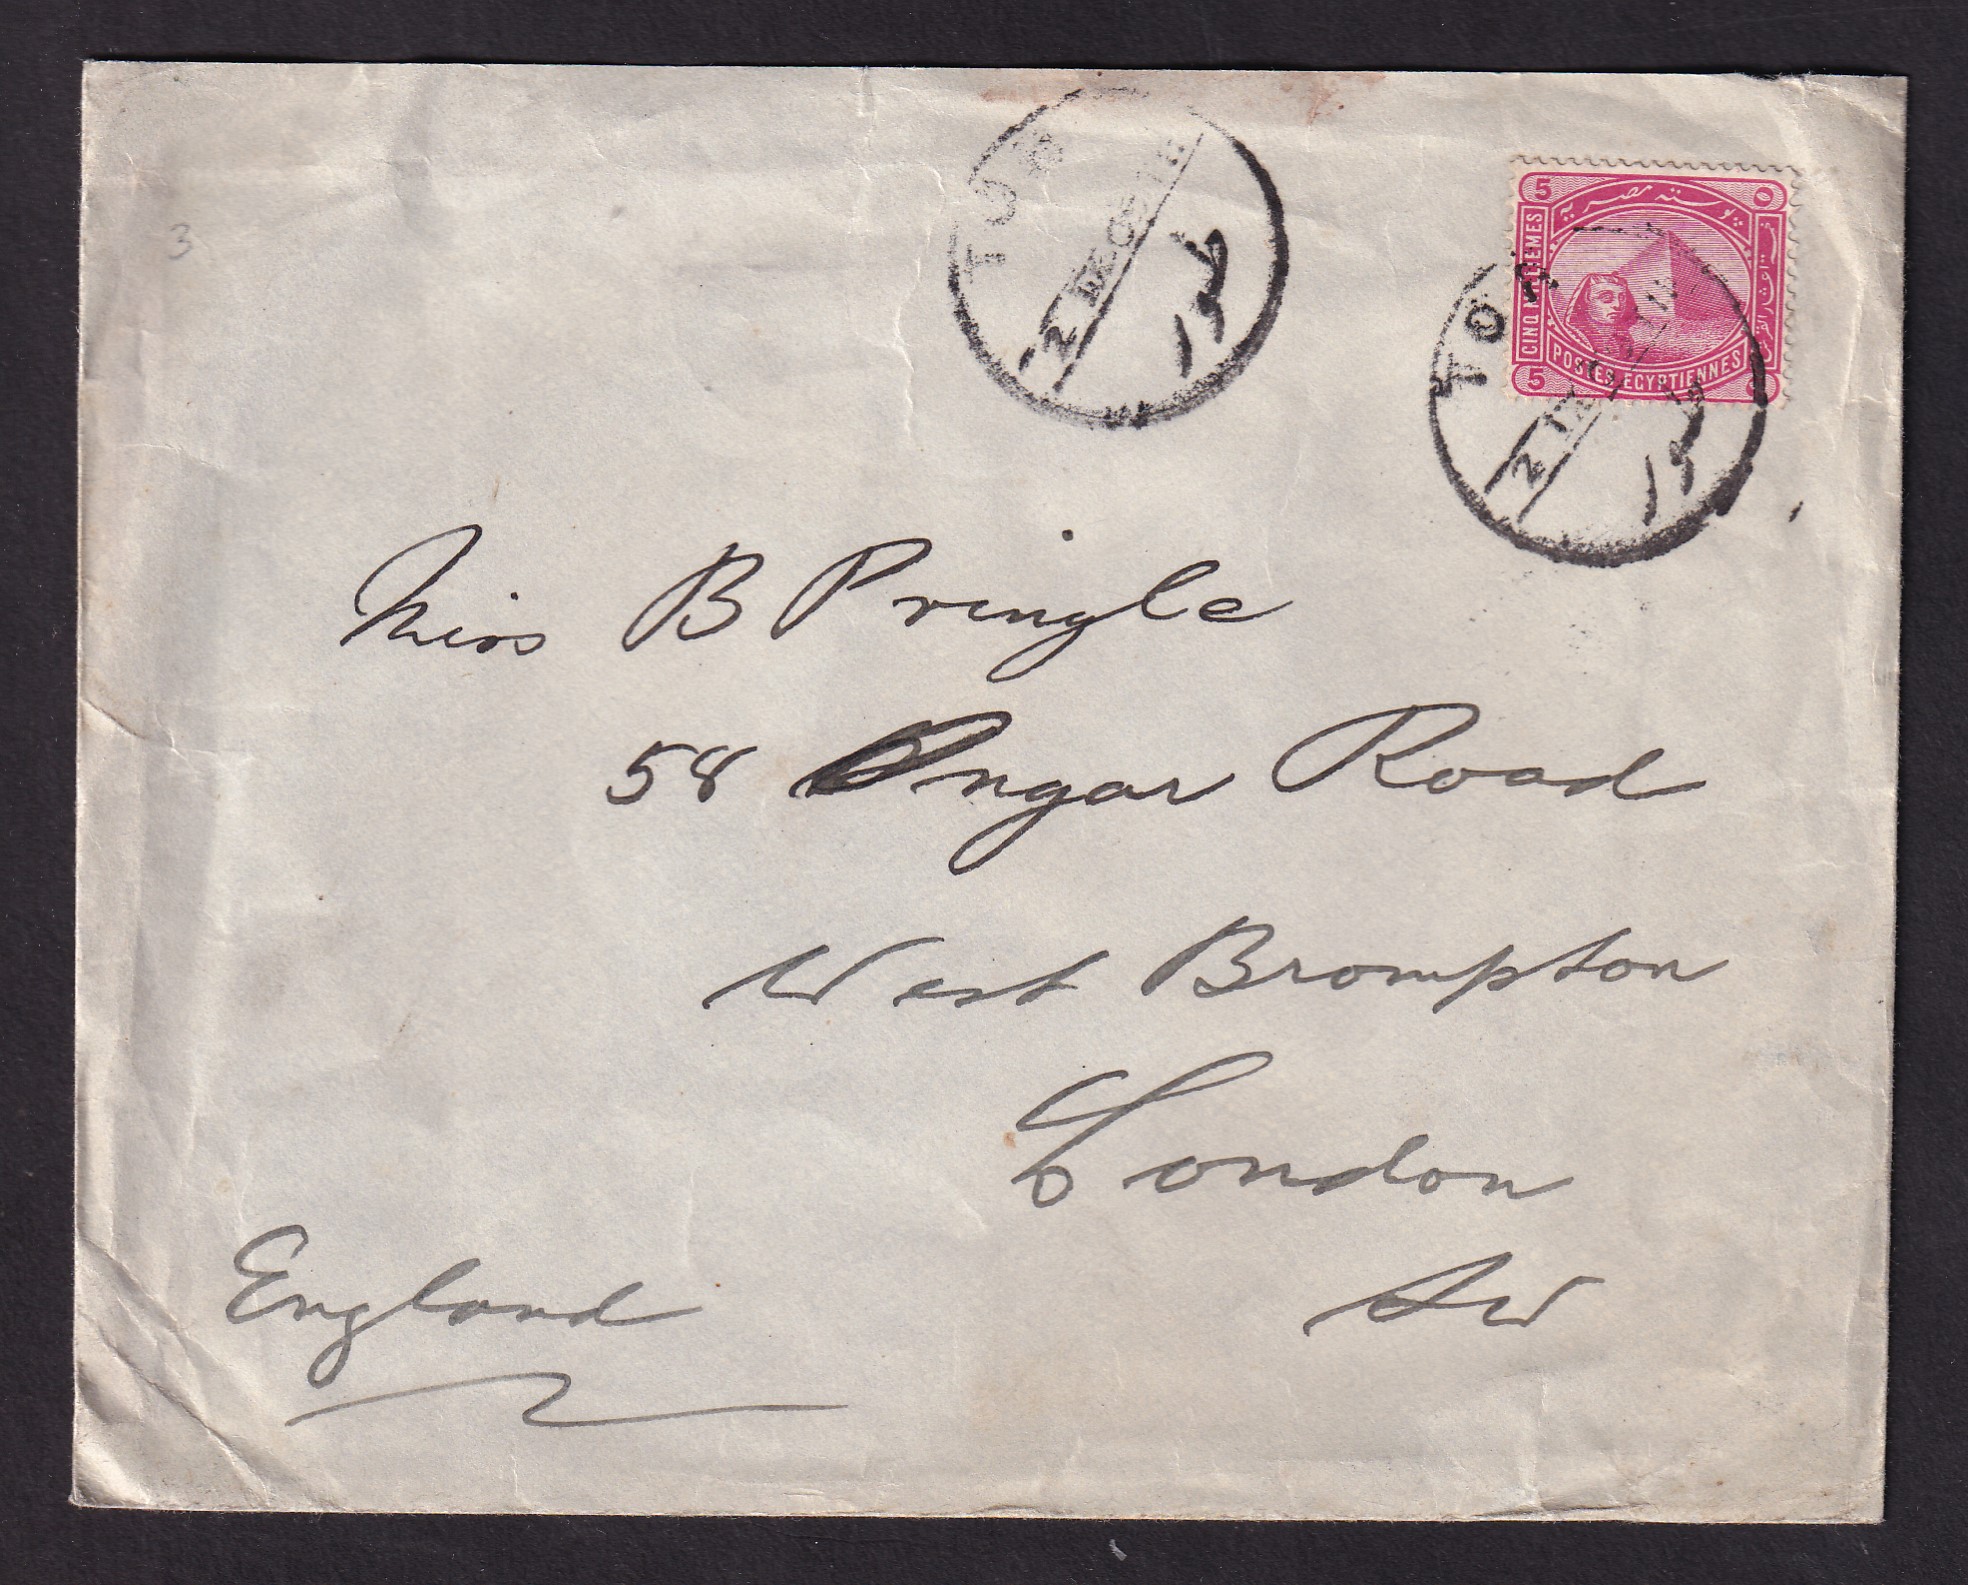 3
TOR
5 ٥
بوستة مصرية
CINQ MILLIEMES
POSTES EGYPTIENNES
5
TOR
2
Miss B Pringle
58 Ongar Road
West Brompton
London
SW
England